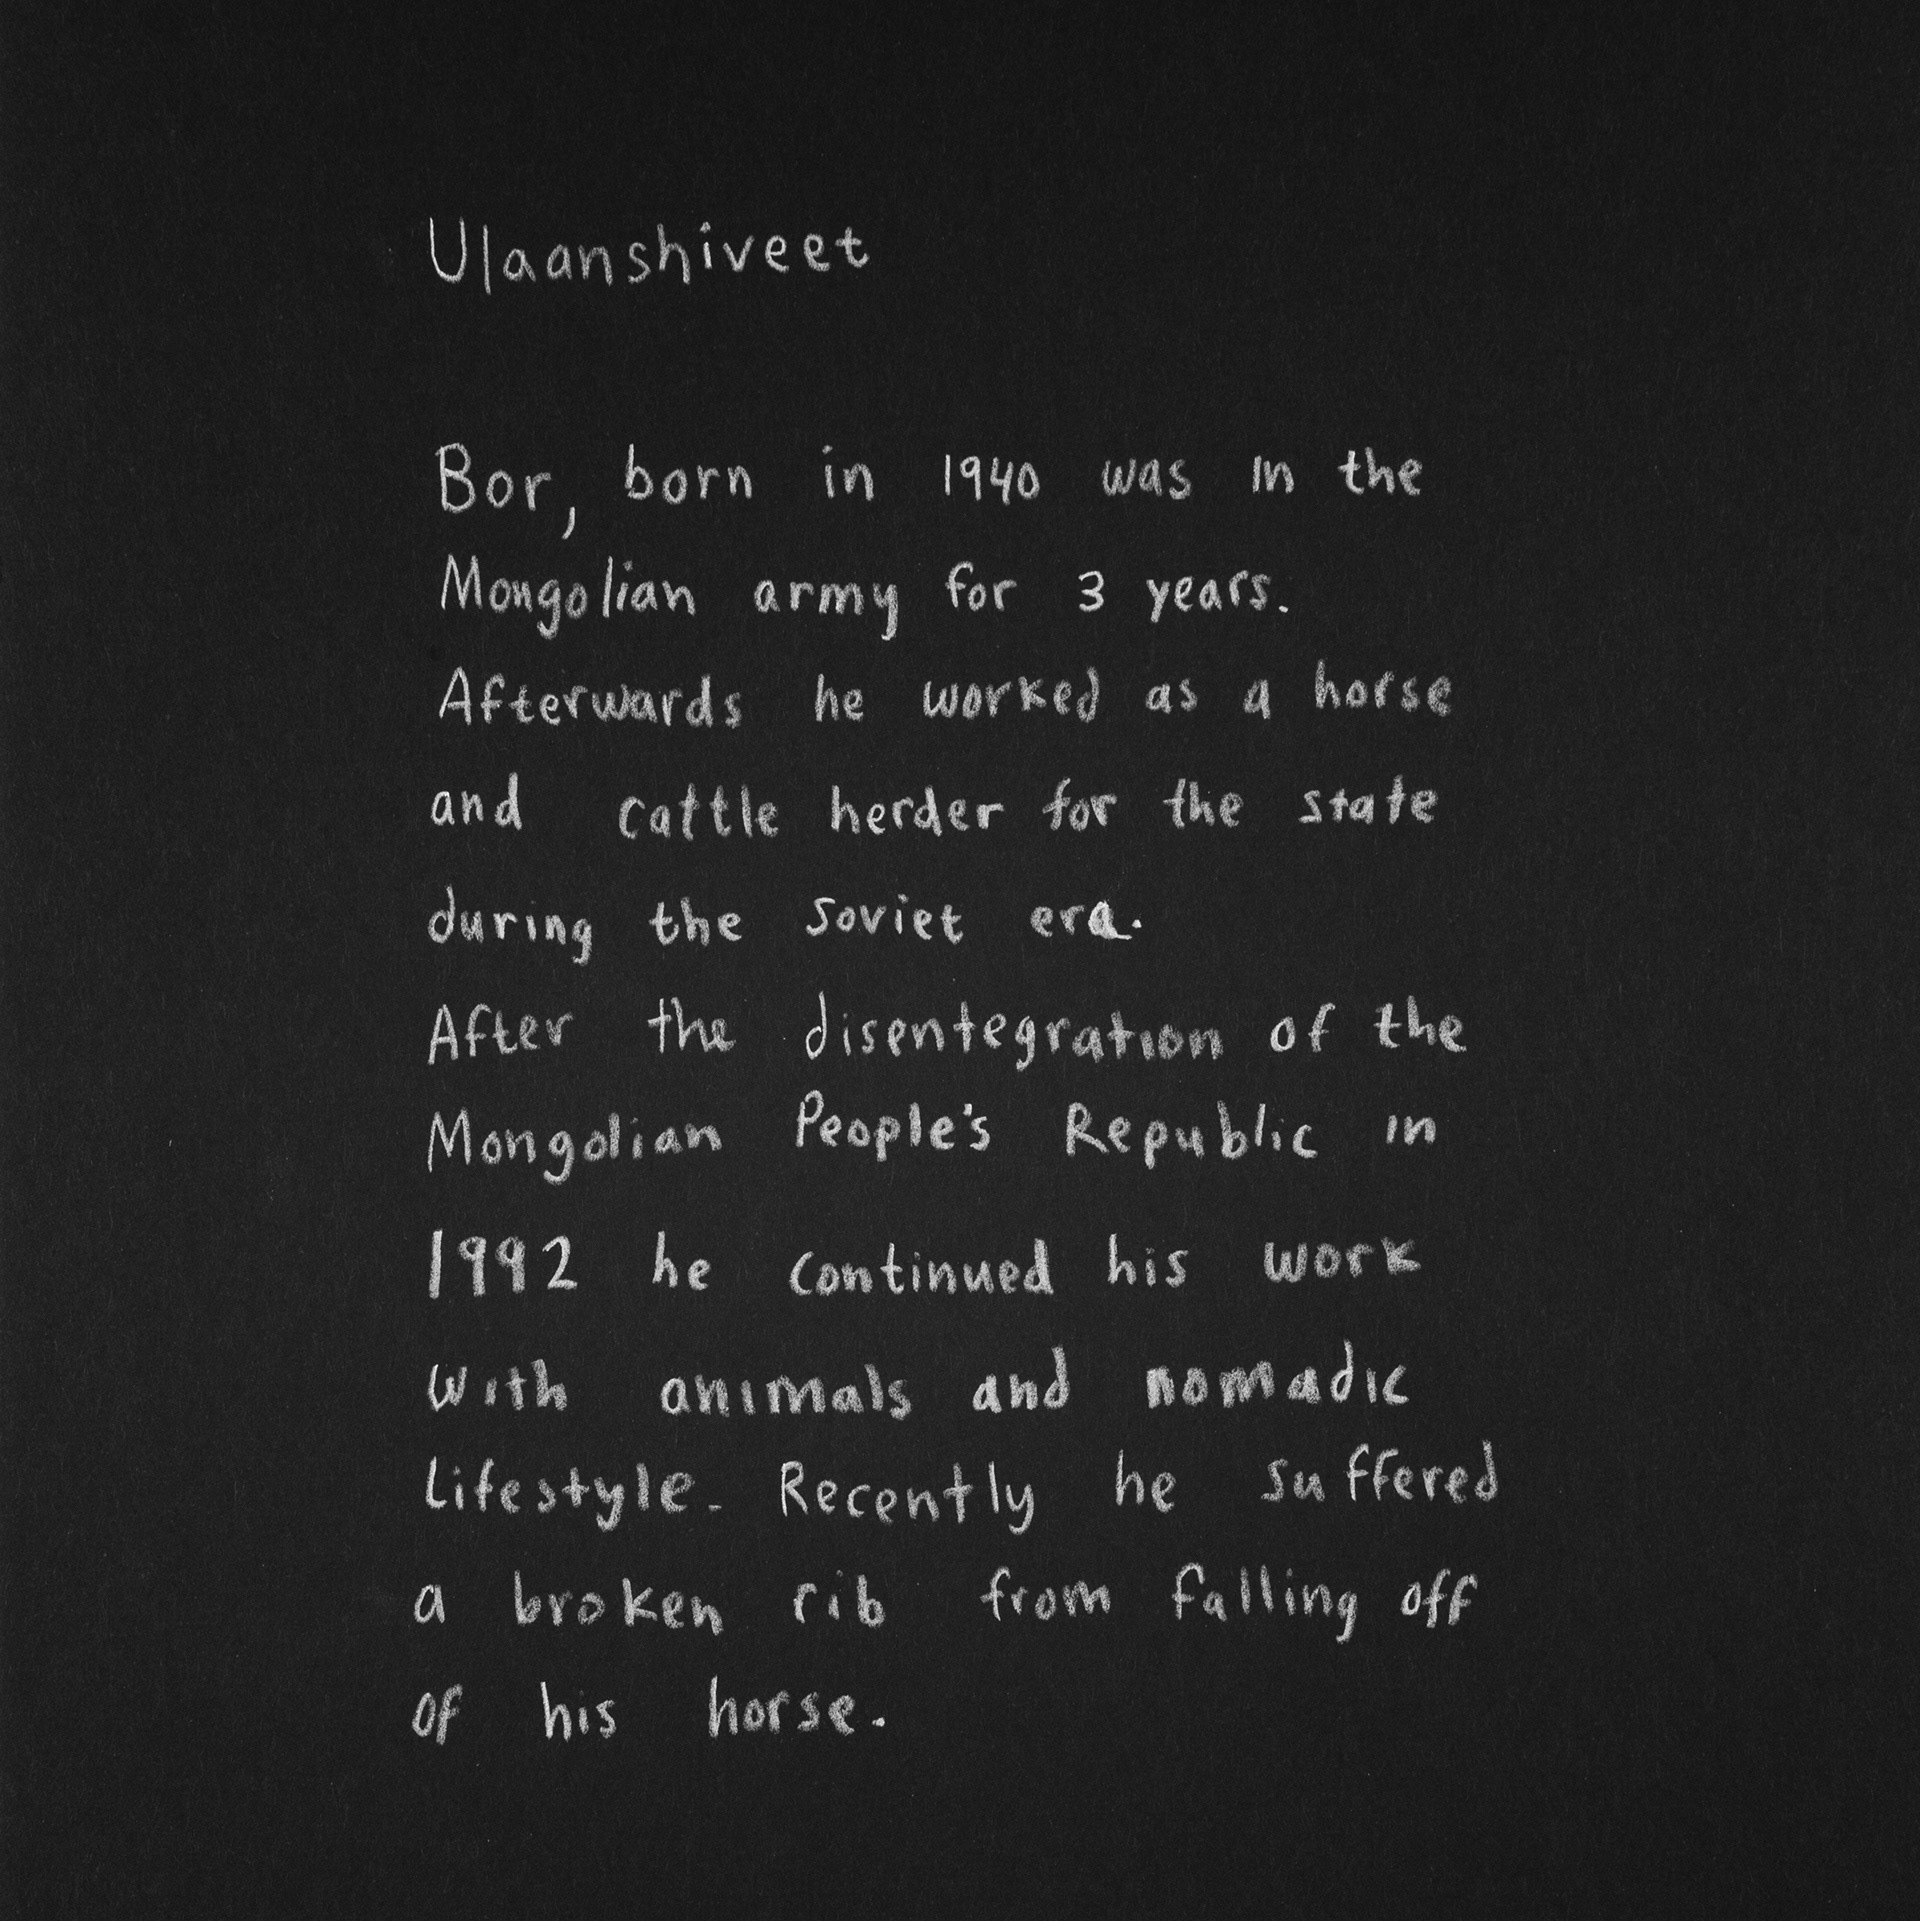 Ulaanshiveet
Bor, born in 1940 was in the
Mongolian army for 3 years.
Afterwards he worked as a horse
and cattle herder for the state
during the soviet era.
After the disentegration of the
Mongolian People's Republic in
1992 he continued his work
with animals and nomadic
lifestyle. Recently he suffered
a broken rib from falling off
of his horse.